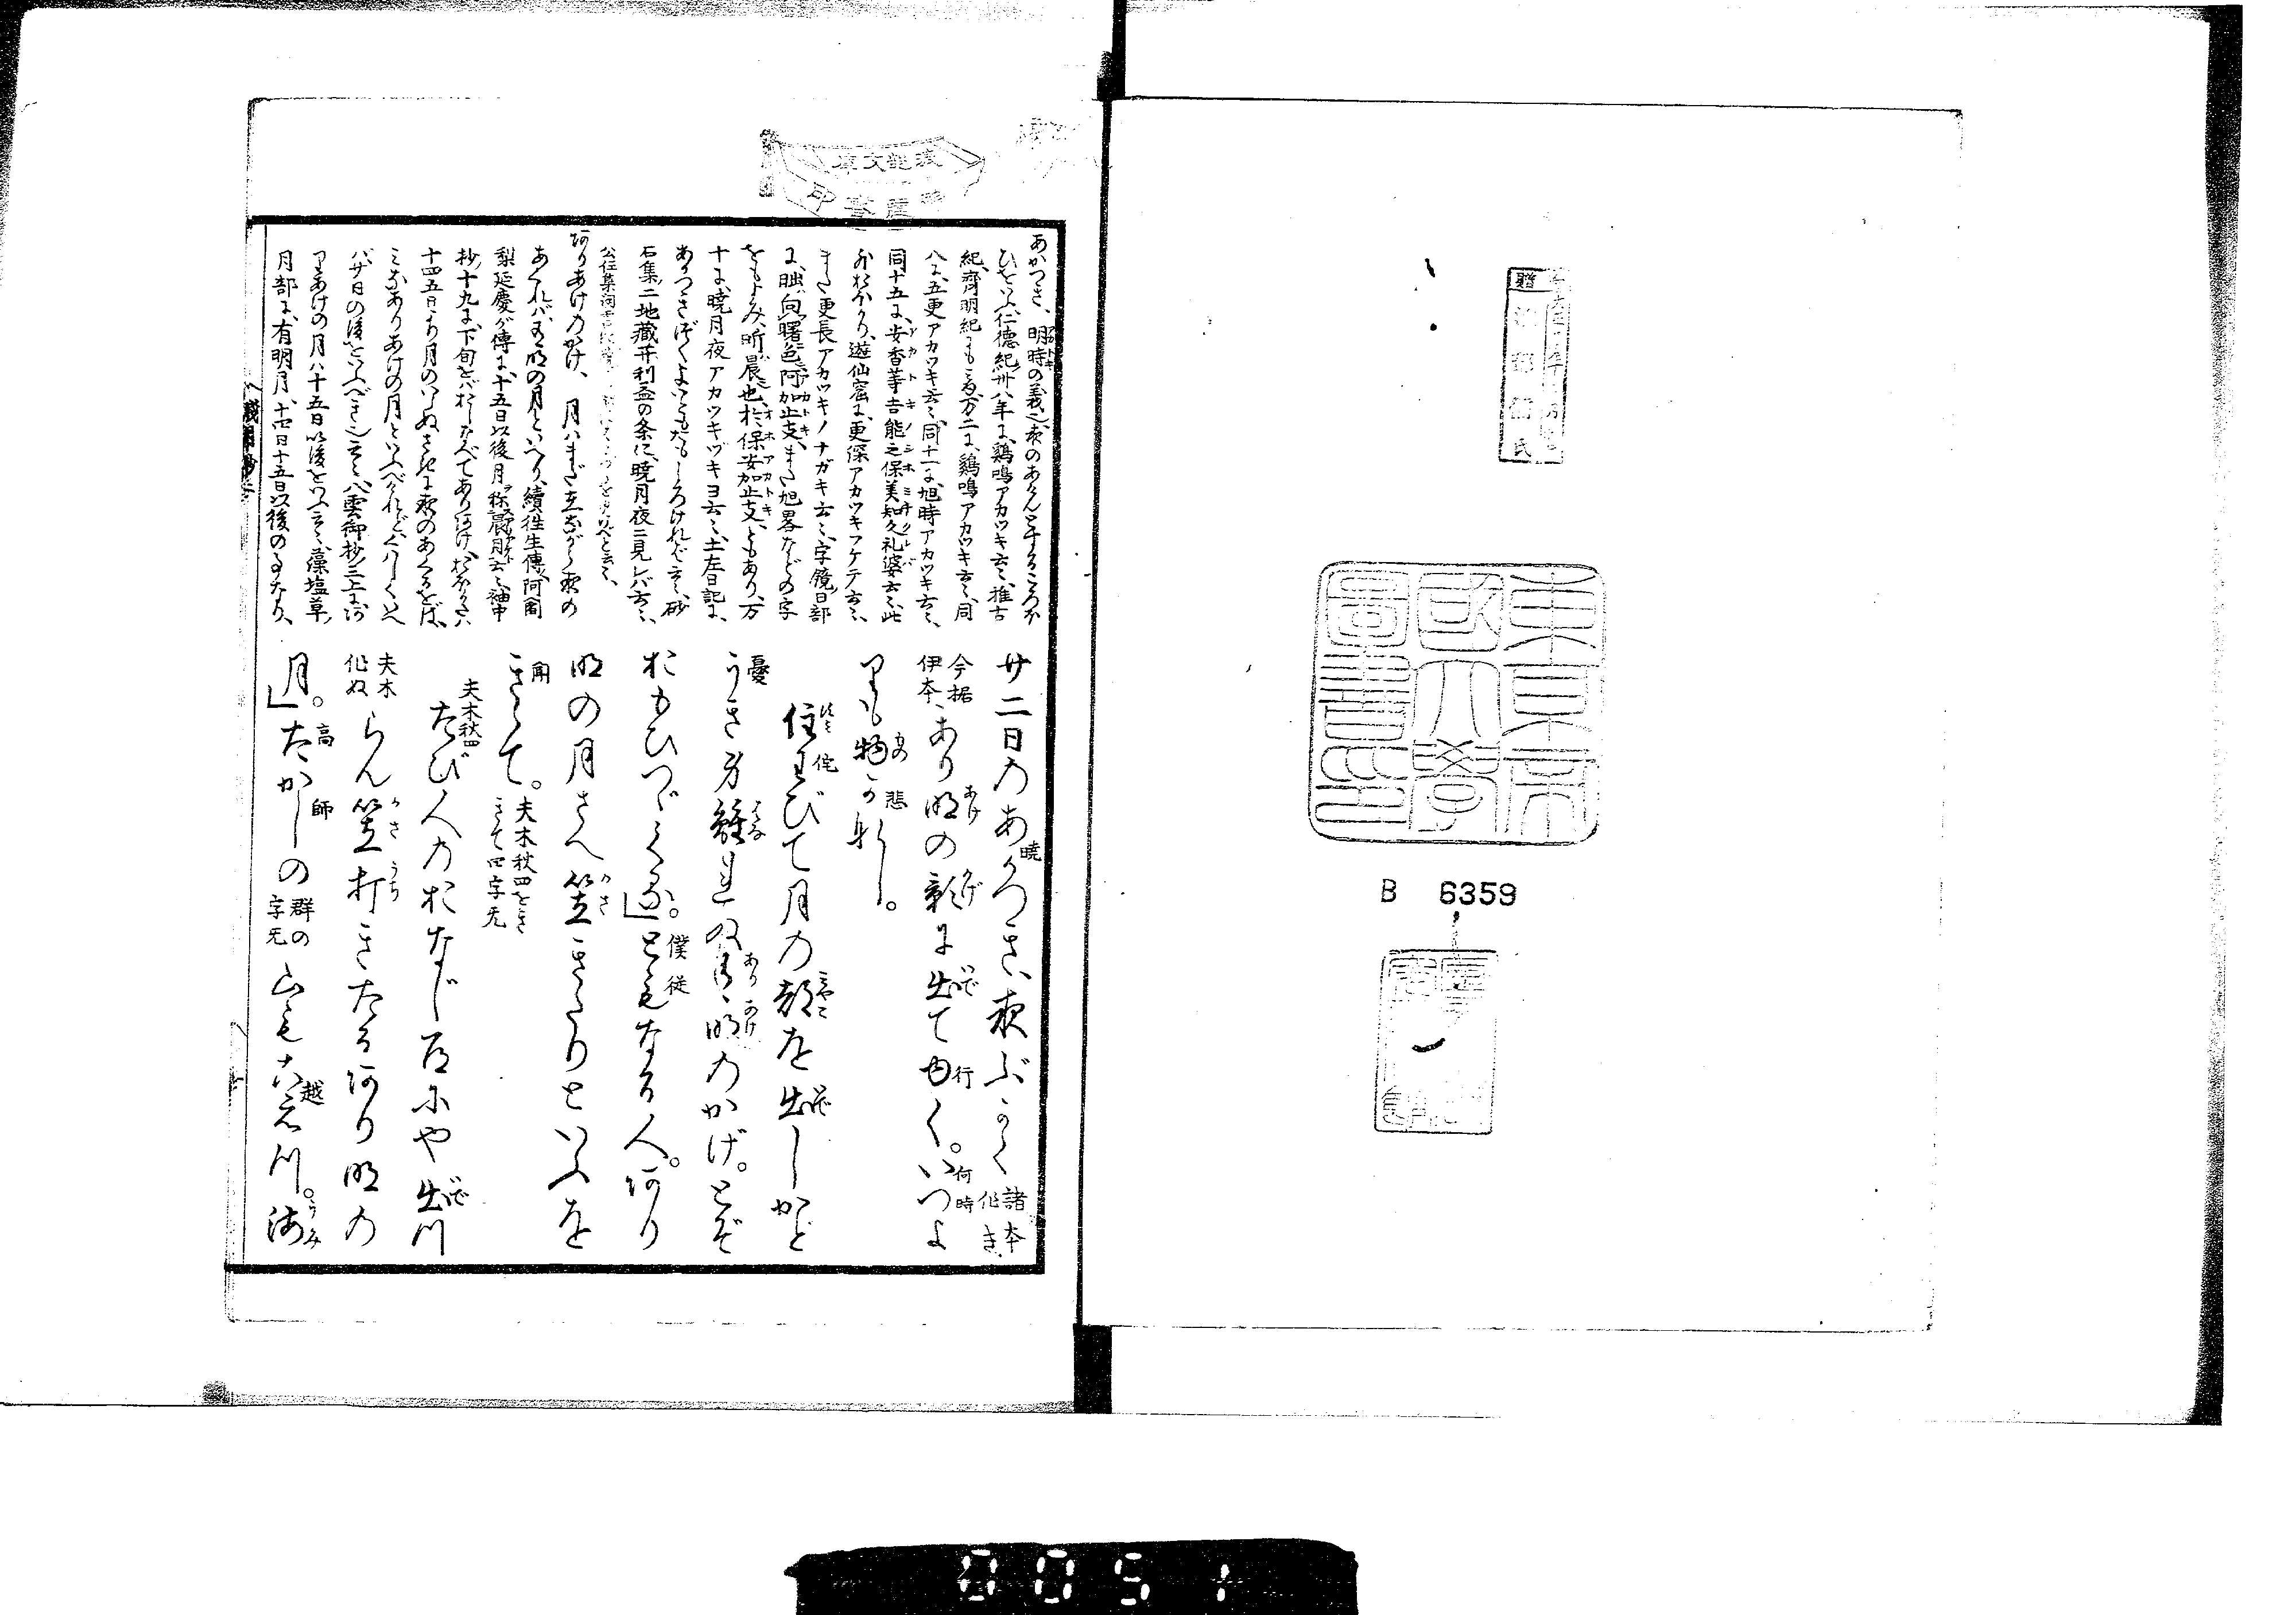 東京帝國大學圖書印
B 6359
あかつき、明時の義也、夜のあけんとするころほ
ひをいふ、仁徳紀卅八年に、鶏鳴アカツキ云々、推古
紀、齊明紀にも見ゆ、万二に、鶏鳴アカツキ云々、同
八に、五更アカツキ云々、同十一に、旭時アカツキ云々、
同十五に、安香等吉能之保美知久礼婆云々、此
外おほかり、遊仙窟に、更深アカツキフケテ云々、
また更長アカツキノナガキ云々、字鏡日部
に、朏、向曙色、阿加止支、また旭畧などの字
をもよみ、昕、晨也、於保安加止支、ともあり、万
十に、暁月夜アカツキヅキヨ云々、土左日記に、
あかつきづくよいともおもしろければ云々、砂
石集ノ二地藏菩利益の条に、暁月夜ニ見レバ云々、
ありあけのかげ、月はまだ立ながら夜の
あくれば、有明の月といへり、續往生傳、阿闍
梨延慶が傳に、十五日以後月称晨月云々、袖中
抄ノ十九に、下旬をばおしなべてありあけ、おほかたは
十四五日より月のいらぬさきに夜のあくるをば、
みなありあけの月といふべけれど、くはしくいへ
ば、廿日の後をいふべき也云々、八雲御抄三上に、あ
りあけの月は十五日以後をいふ云々、藻塩草ノ
月部に、有明月、十四日十五日以後の事なり、
廿二日のあかつき、夜ぶかく諸本作き
今据伊本ありあけの影に出てゆく。いつよ
りも物がなし。
住わびて月の都を出しかど
うき身離れぬ有明のかげ。とぞ
おもひつゞくる。」ともなる人。あり
明の月さへ笠きたりといふを
きゝて。夫木秋四をききて四字无
夫木秋四
たび人のおなじ道にや出つ
夫木作ぬらん笠打きたるありあけの
月。」たかしの群の字无山もこえつ。海